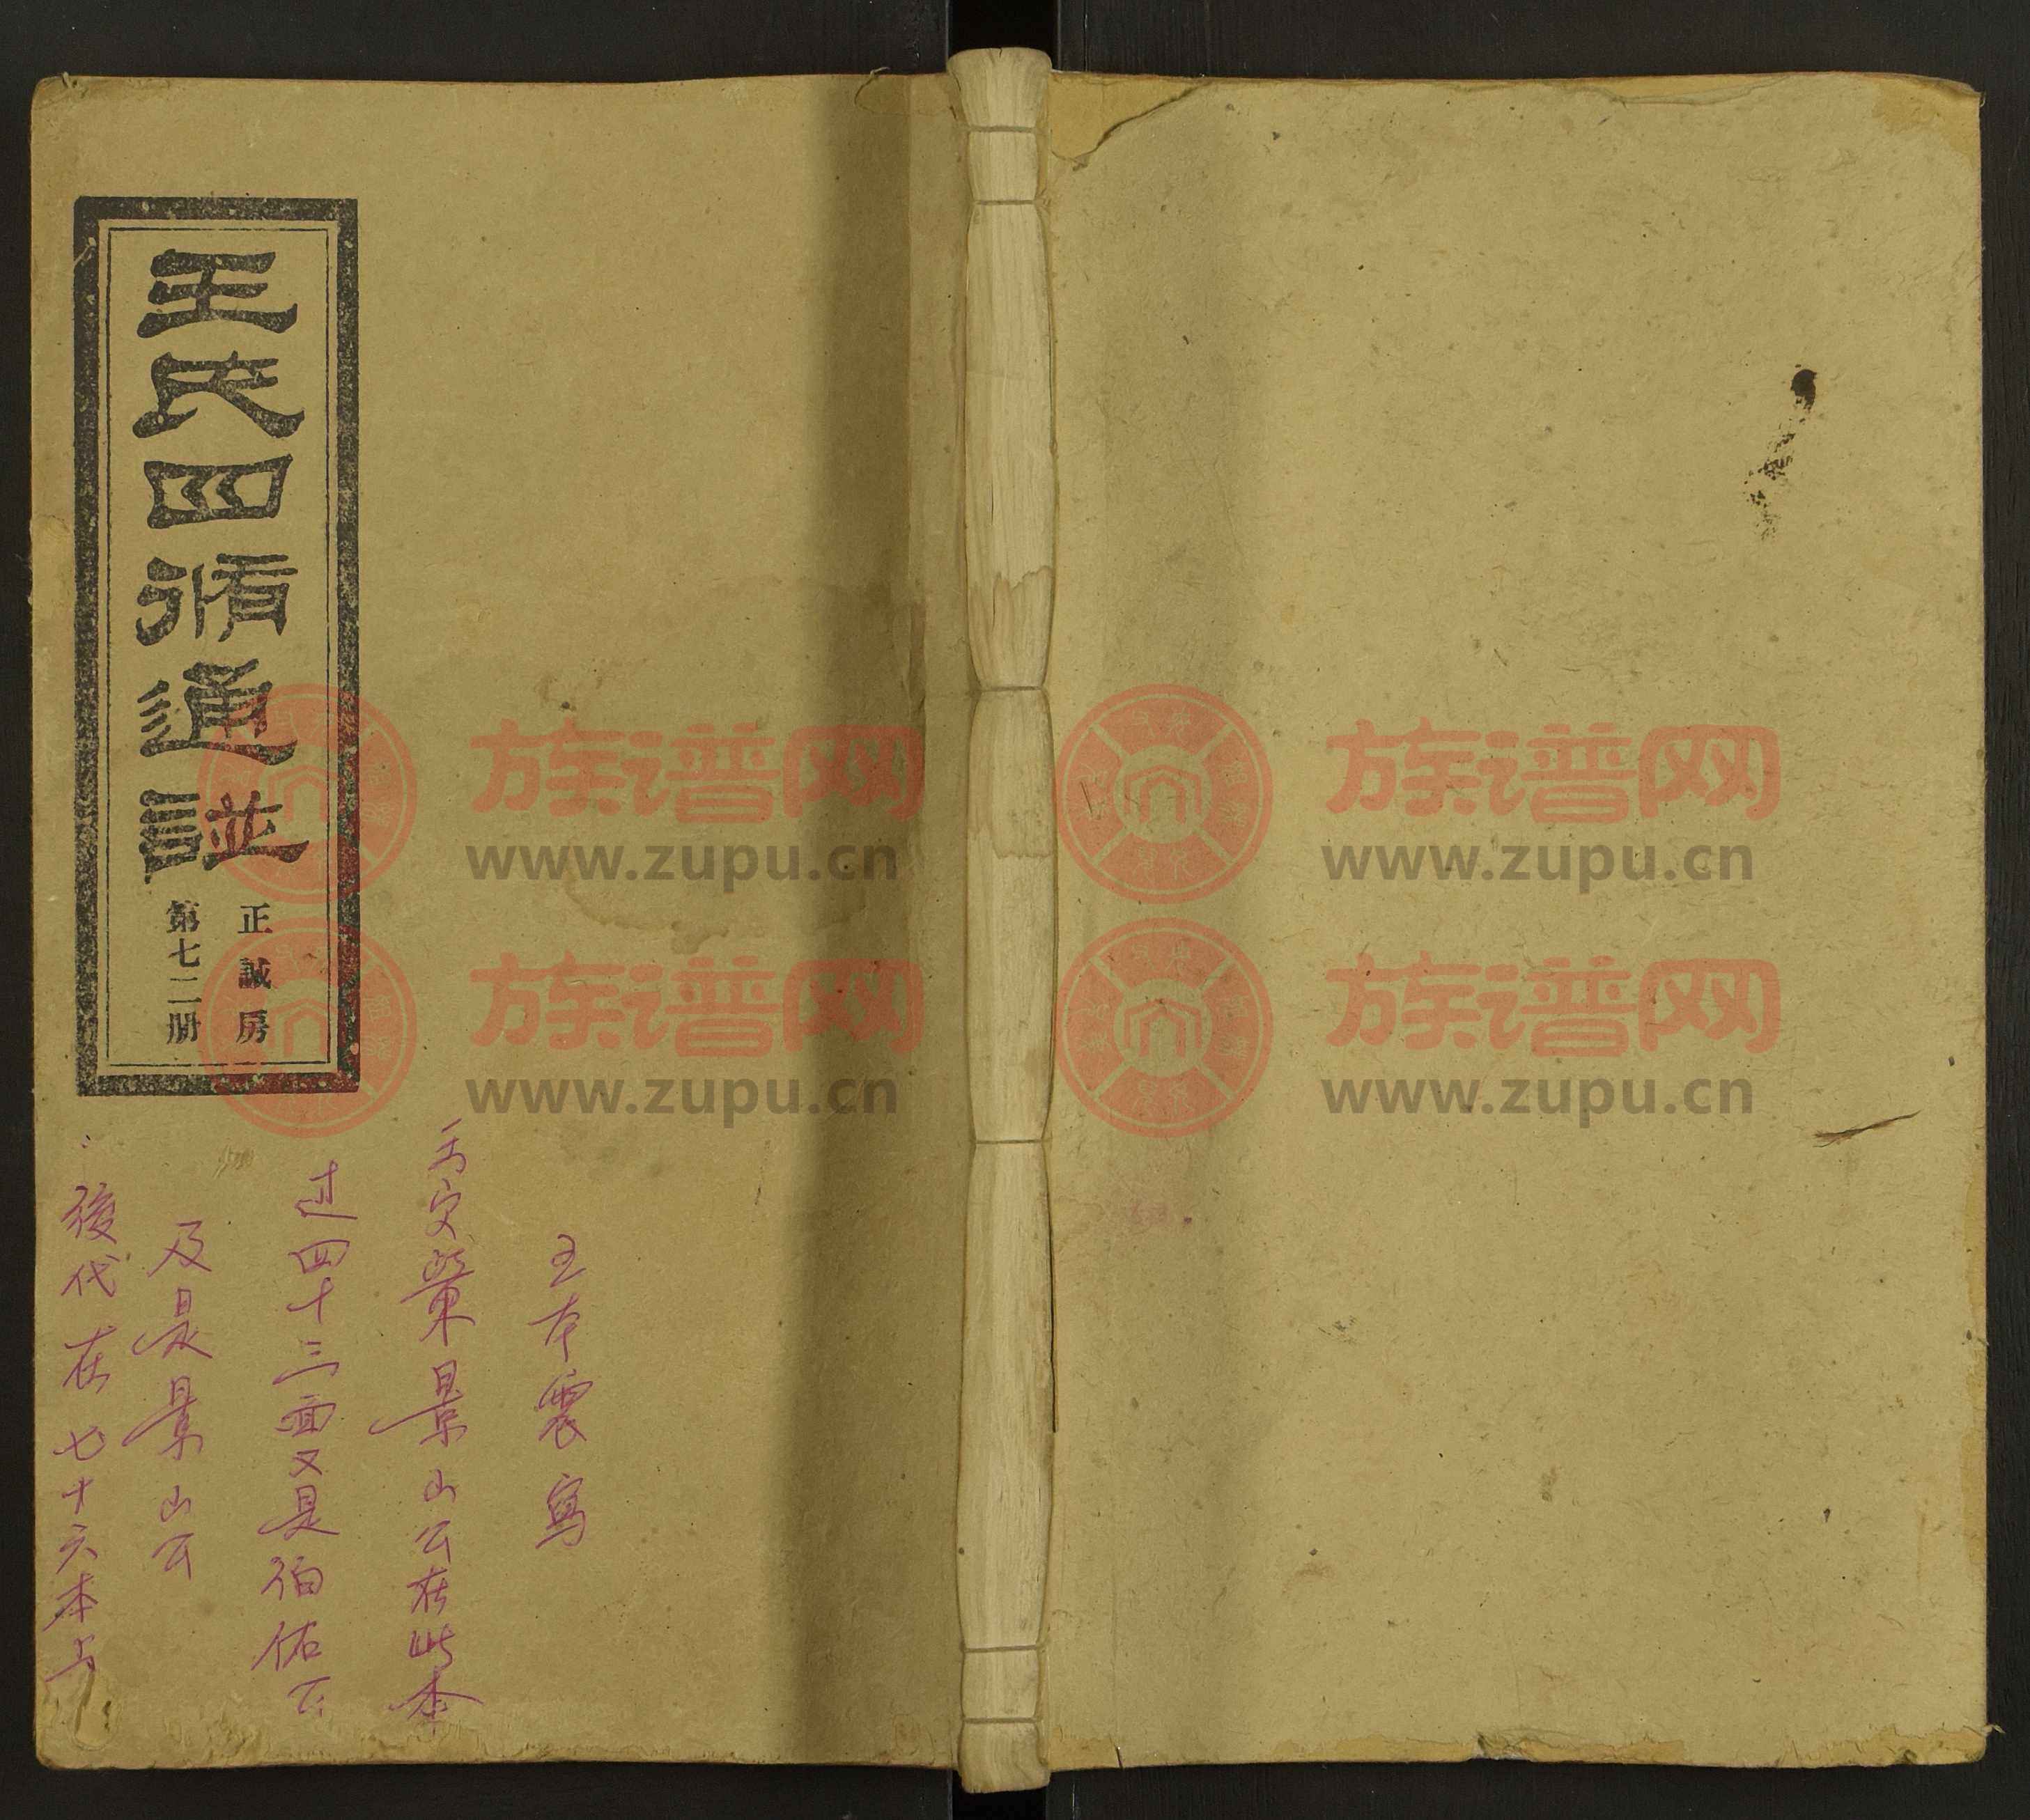 王氏四脩通譜
正誠房
第七二册
王本震寫
景山公在此本
过四十三面又是伯佑公
及是景山公
後代在七十六本上
族谱网
www.zupu.cn
族谱网
www.zupu.cn
族谱网
www.zupu.cn
族谱网
www.zupu.cn